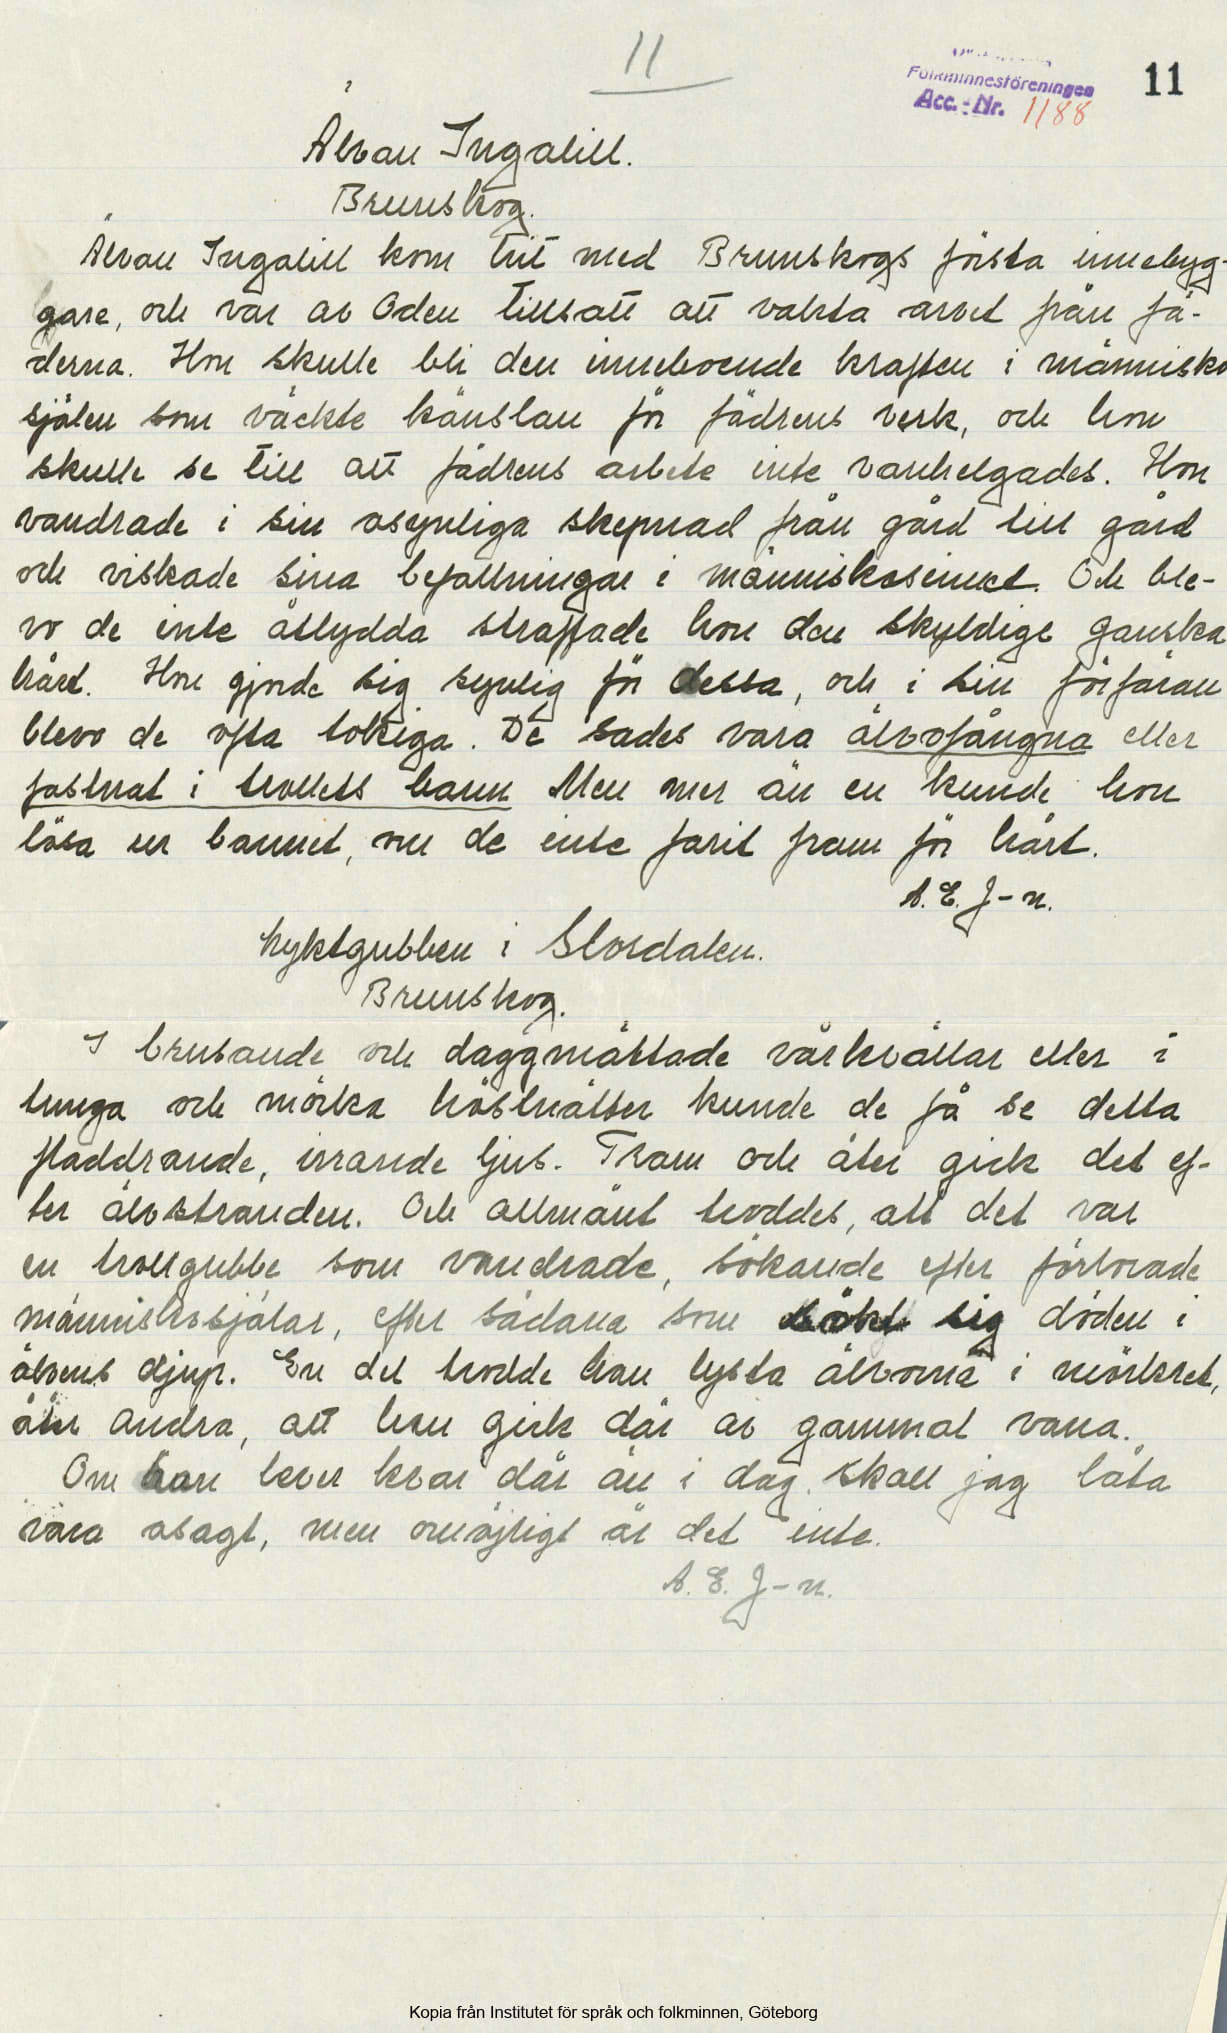 11
Folkminnesföreningen
Acc.-Nr. 1188
11
Älvan Ingalill.
Brunskog.
Älvan Ingalill kom hit med Brunskogs första innebyg-
gare, och var av Oden tillsatt att vakta arvet från fä-
derna. Hon skulle bli den inneboende kraften i människo
själen som väckte känslan för fädrens verk, och hon
skulle se till att fädrens arbete inte vanhelgades. Hon
vandrade i sin osynliga skepnad från gård till gård
och viskade sina befallningar i människosinnet. Och ble-
vo de inte åtlydda straffade hon den skyldige ganska
hårt. Hon gjorde sig synlig för dessa, och i sin förfäran
blevo de ofta tokiga. De sades vara älvofångna eller
fastnat i trollets bann Men mer än en kunde hon
lösa ur bannet, om de inte farit fram för hårt.
A. E. J-n.
Lyktgubben i Slordalen.
Brunskog.
I brusande och daggmättade vårkvällar eller i
tunga och mörka höstnätter kunde de få se detta
fladdrande, irrande ljus. Fram och åter gick det ef-
ter älvstranden. Och allmänt troddes, att det var
en trollgubbe som vandrade, sökande efter förlorade
människosjälar, efter sådana som sökt sig döden i
älvens djup. En del trodde han lysta älvorna i mörkret,
åter andra, att han gick där av gammal vana.
Om han lever kvar där än i dag, skall jag låta
vara osagt, men omöjligt är det inte.
A. E. J-n.
Kopia från Institutet för språk och folkminnen, Göteborg